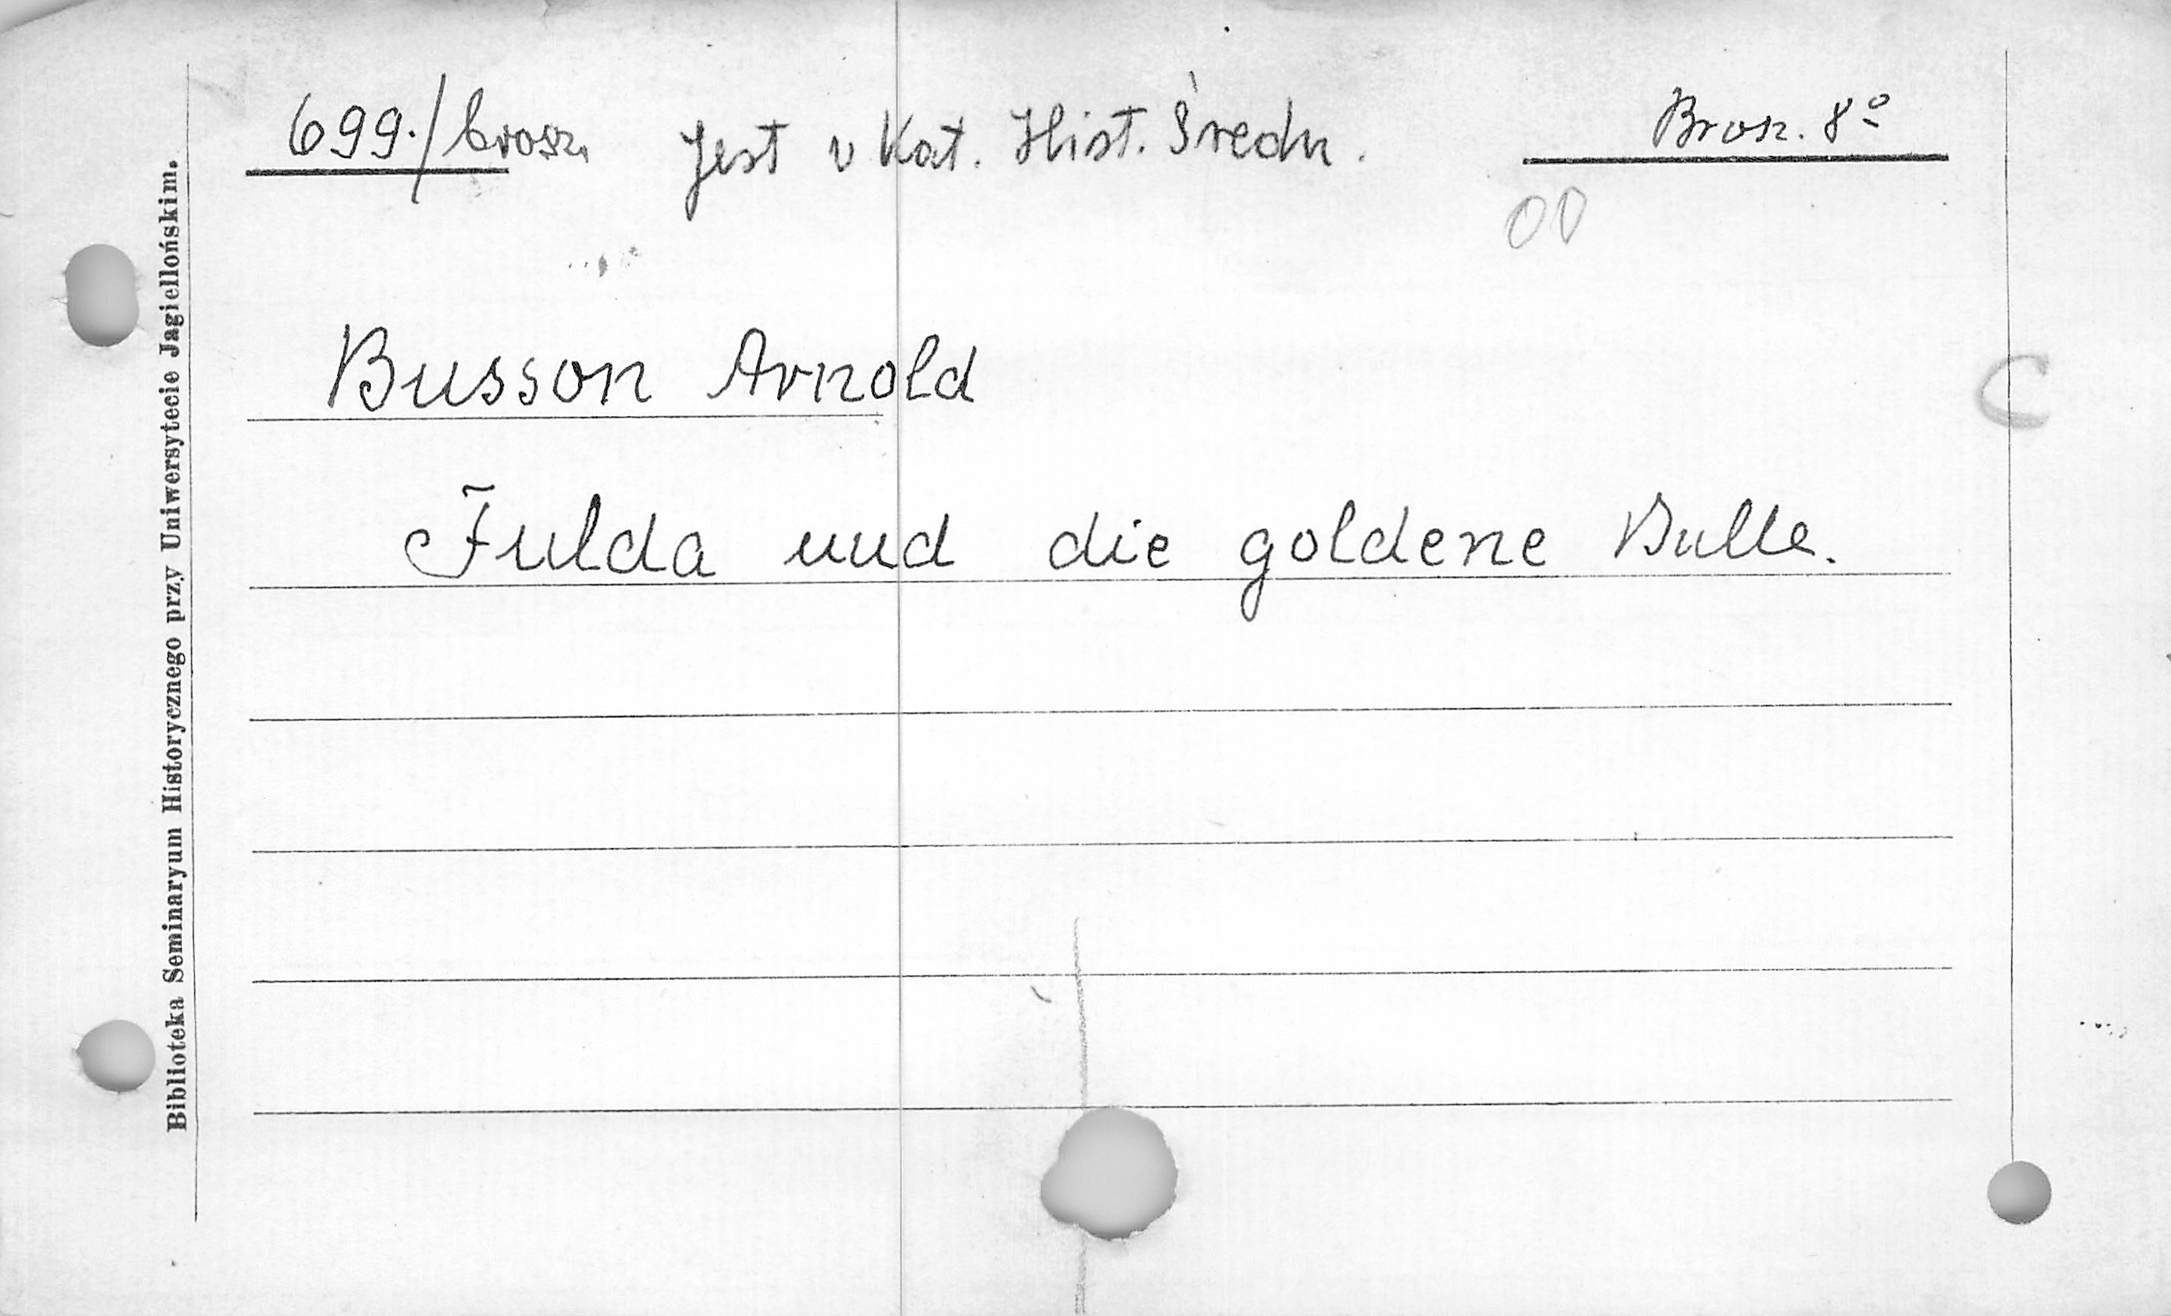 699./brosz. Jest w Kat. Hist. Średn. Brosz. 8º
00
Busson Arnold
C
Fulda und die goldene Bulle.
Biblioteka Seminaryum Historycznego przy Uniwersytecie Jagiellońskim.